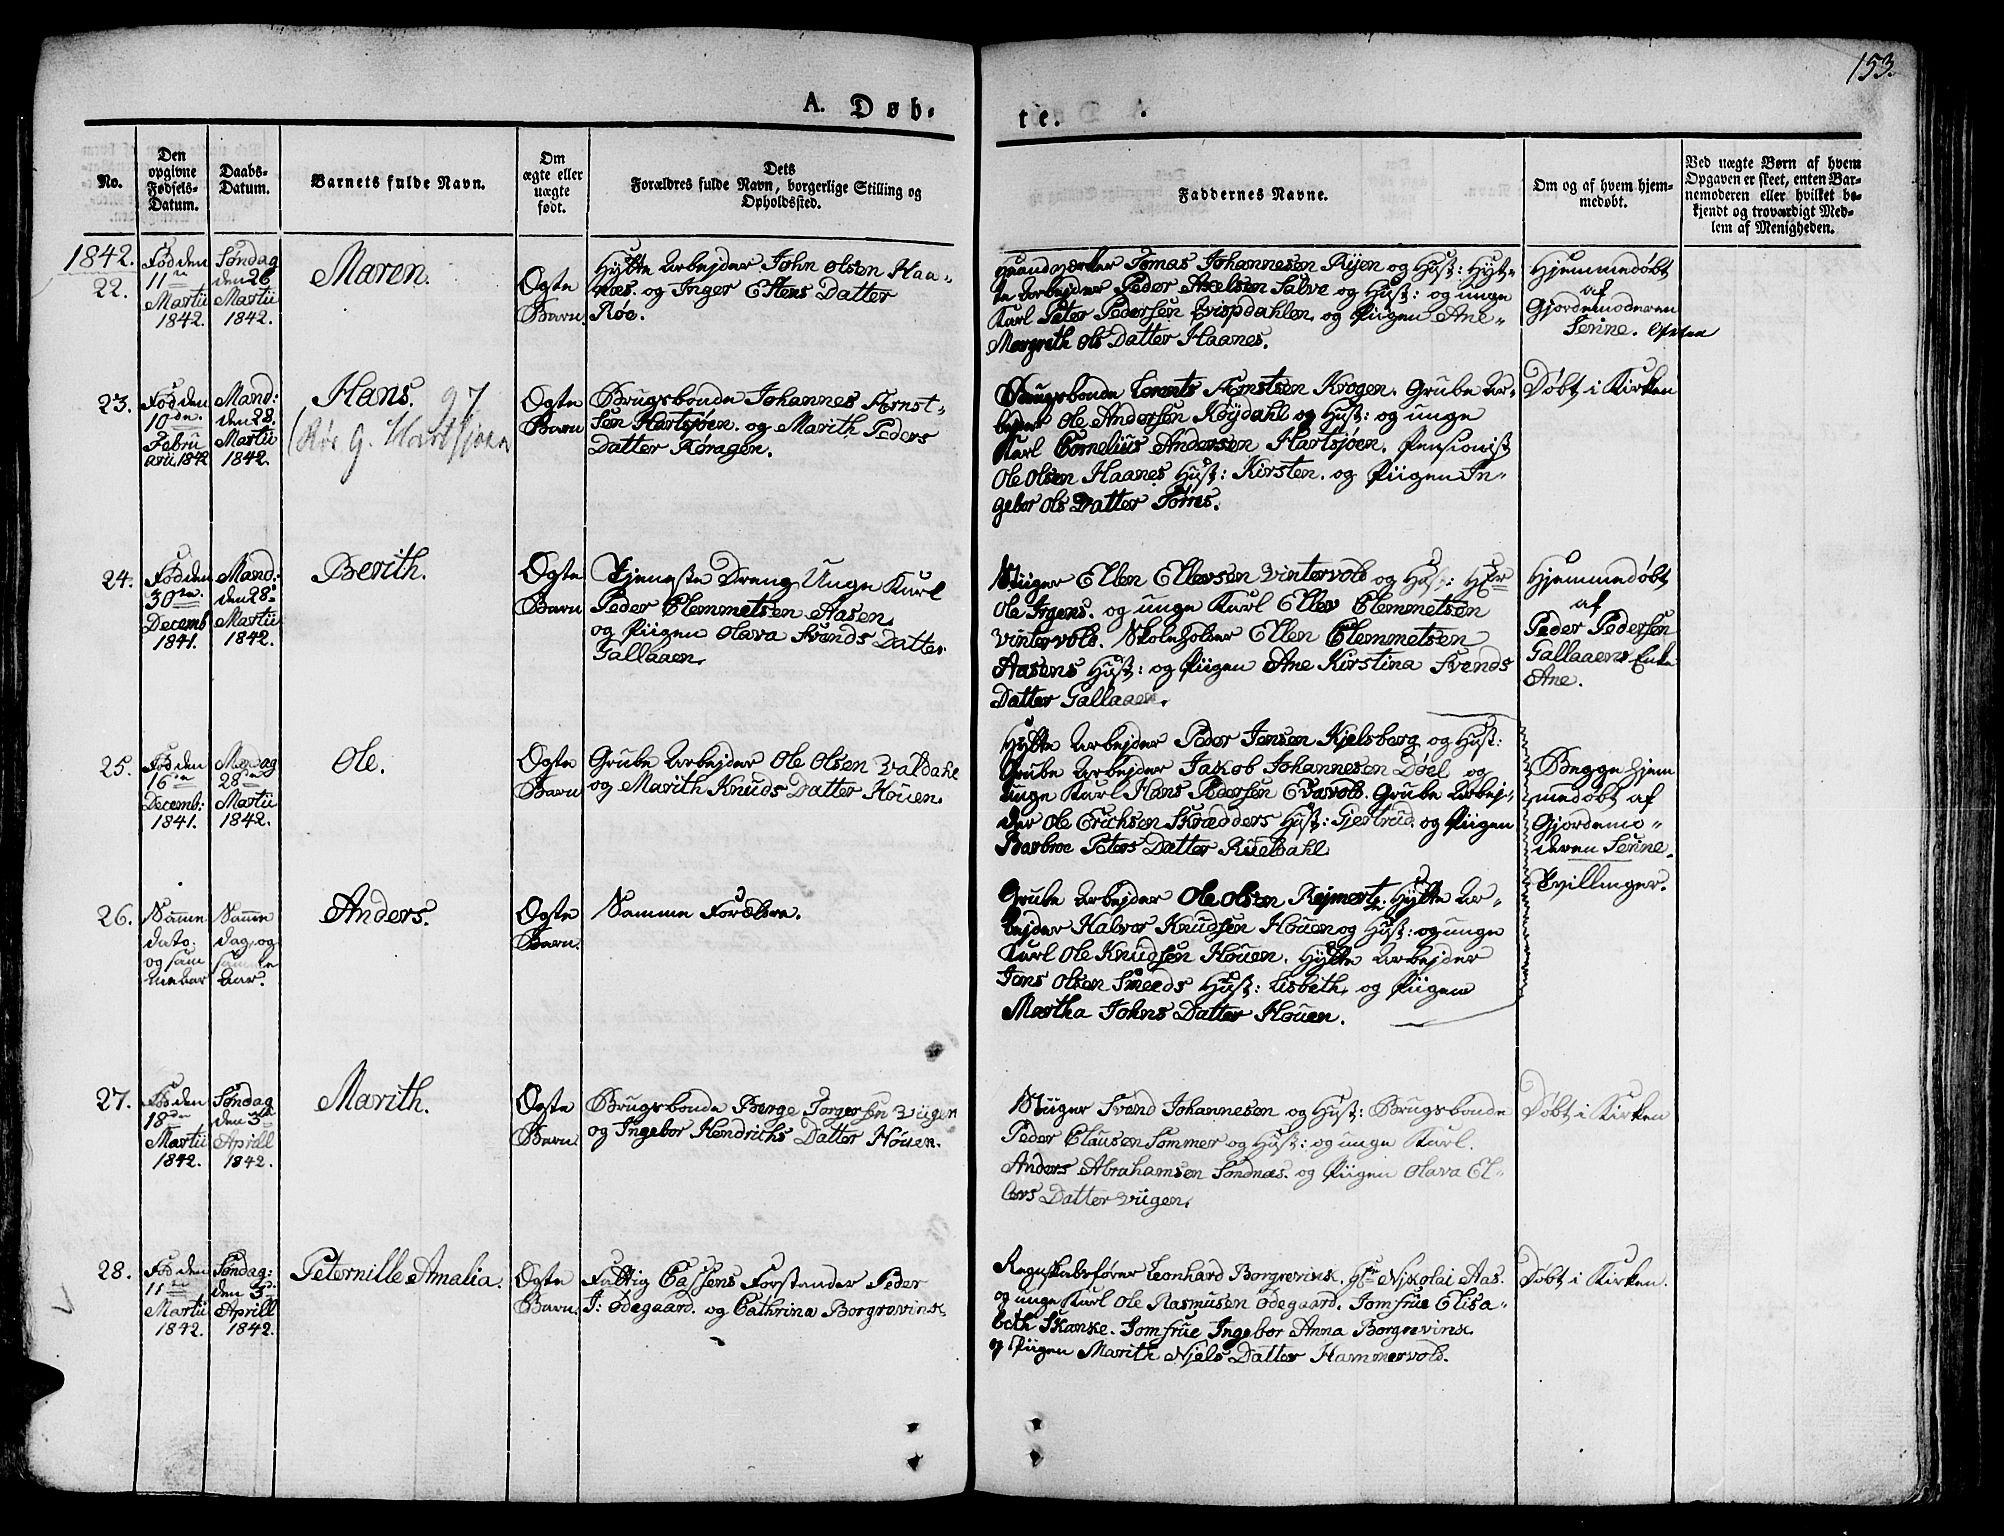 153.
A. Døb-
te.
No.
Den
opgivne
Fødsels-
Datum.
Daabs-
Datum.
Barnets fulde Navn.
Om
ægte eller
uægte
født.
Dets
Forældres fulde Navn, borgerlige Stilling og
Opholdssted.
Faddernes Navne.
Om og af hvem hjem-
medøbt.
Ved uægte Børn af hvem
Opgaven er skeet, enten Bar-
nemoderen eller hvilket be-
kjendt og troværdigt Med-
lem af Menigheden.
1842.
22.
Fød den
11te
Martii
1842.
Søndag
den 26
Martii
1842.
Maren.
Ægte
Barn.
Hytte Arbejder John Olsen Haa-
næs. og Inger Estens Datter
Røe.
Haandværker Tomas Johannesen Ryen og Hust: Hyt-
te Arbejder Peder Axelsen Salve og Hust: og unge
Karl Peter Pedersen Qvispdahlen, og Piigen Ane
Margrith Ols Datter Haanes.
Hjemmedøbt
af
Gjordemoderen
Serine.
23.
Fød den
10de
Febru
arii 1842
Mand:
den 28.
Martii
1842.
Hans. 97
(Røe G. Hartsjøen
Ægte
Barn
Brugsbonde Johannes Arnst-
sen Hartsjøen. og Marith Peders
Datter Røragen.
Brugsbonde Lorents Arnstsen Krogen. Grube Ar-
bejder Ole Andersen Køjdahl og Hust: og unge
Karl Cornelius Andersen Hartsjøen. Pensionist
Ole Olsen Haanes Hust: Kirsten. og Piigen In-
gebor Ols Datter Tønes.
Døbt i Kirken
24.
Fød den
30te
Decemb
1841.
Mand:
den 28
Martii
1842.
Berith.
Ægte
Barn
Tjeneste Dreng Unge Karl
Peder Clemmetsen Aasen.
og Piigen Olava Svends Datter
Gallaaen.
Stiiger Ellen Ellevsen Vintervold og Hust: Hr
Ole Irgens. og unge Karl Ellev Clemmetsen
Vintervold. Skoleholder Ellen Clemmetsen
Aasens Hust: og Piigen Ane Kirstina Svends
Datter Gallaaen.
Hjemmedøbt
af
Peder Pedersen
Gallaaens Enke
Ane.
25.
Fød den
16de
Decemb:
1841.
Mandag
28de
Martii
1842.
Ole.
Ægte
Barn.
Grube Arbejder Ole Olsen Valdahl
og Marith Knuds Datter Houen.
Hytte Arbejder Peder Jensen Kjelsberg og Hust:
Grube Arbejder Jakob Johannesen Døel og
unge Karl Hans Pedersen Evavold. Grube Arbej-
der Ole Erichsen Skrædders Hust: Gjertrud. og Piigen
Barbroe Peters Datter Rueldahl
Begge hjem
medøbt af
Gjordemo-
deren Serine.
Tvillinger.
26.
Samme
dato.
og sam
me aar
Samme
dag og
samme
aar.
Anders.
Ægte
Barn.
Samme Forældre.
Grube Arbejder Ole Olsen Rejmertz. Hytte Ar-
bejder Halvor Knudsen Houen og Hust: og unge
Karl Ole Knudsen Houen. Hytte Arbejder
Jens Olsen Smeds Hust: Lisbeth, og Piigen
Martha Johns Datter Houen.
27.
Fød den
18de
Martii
1842.
Søndag
den 3die
Aprill
1842.
Marith.
Ægte
Barn
Brugsbonde Berge Torgersen Viigen
og Ingebor Hendrichs Datter Houen.
Stiiger Svend Johannesen og Hust: Brugsbonde
Peder Clausen Sommer og Hust: og unge Karl
Anders Abrahamsen Sondnæs. og Piigen Olava El-
lers Datter Viigen.
Døbt i Kirken
28.
Fød den
11te
Martii
1842.
Søndag:
den 3d
Aprill
1842.
Peternille Amalia.
Ægte
Barn.
Fattig Cassens Forstander Peder
J: Ødegaard. og Cathrina Borgrevink
Regnskabsfører Leonhard Borgrevink. Njkolai Aas.
og unge Karl Ole Rasmusen Ødegaard. Jomfrue Elisa-
beth Skanke. Jomfrue Ingebor Anna Borgrevink
og Piigen Marith Njels Datter Hammervold.
Døbt i Kirken.